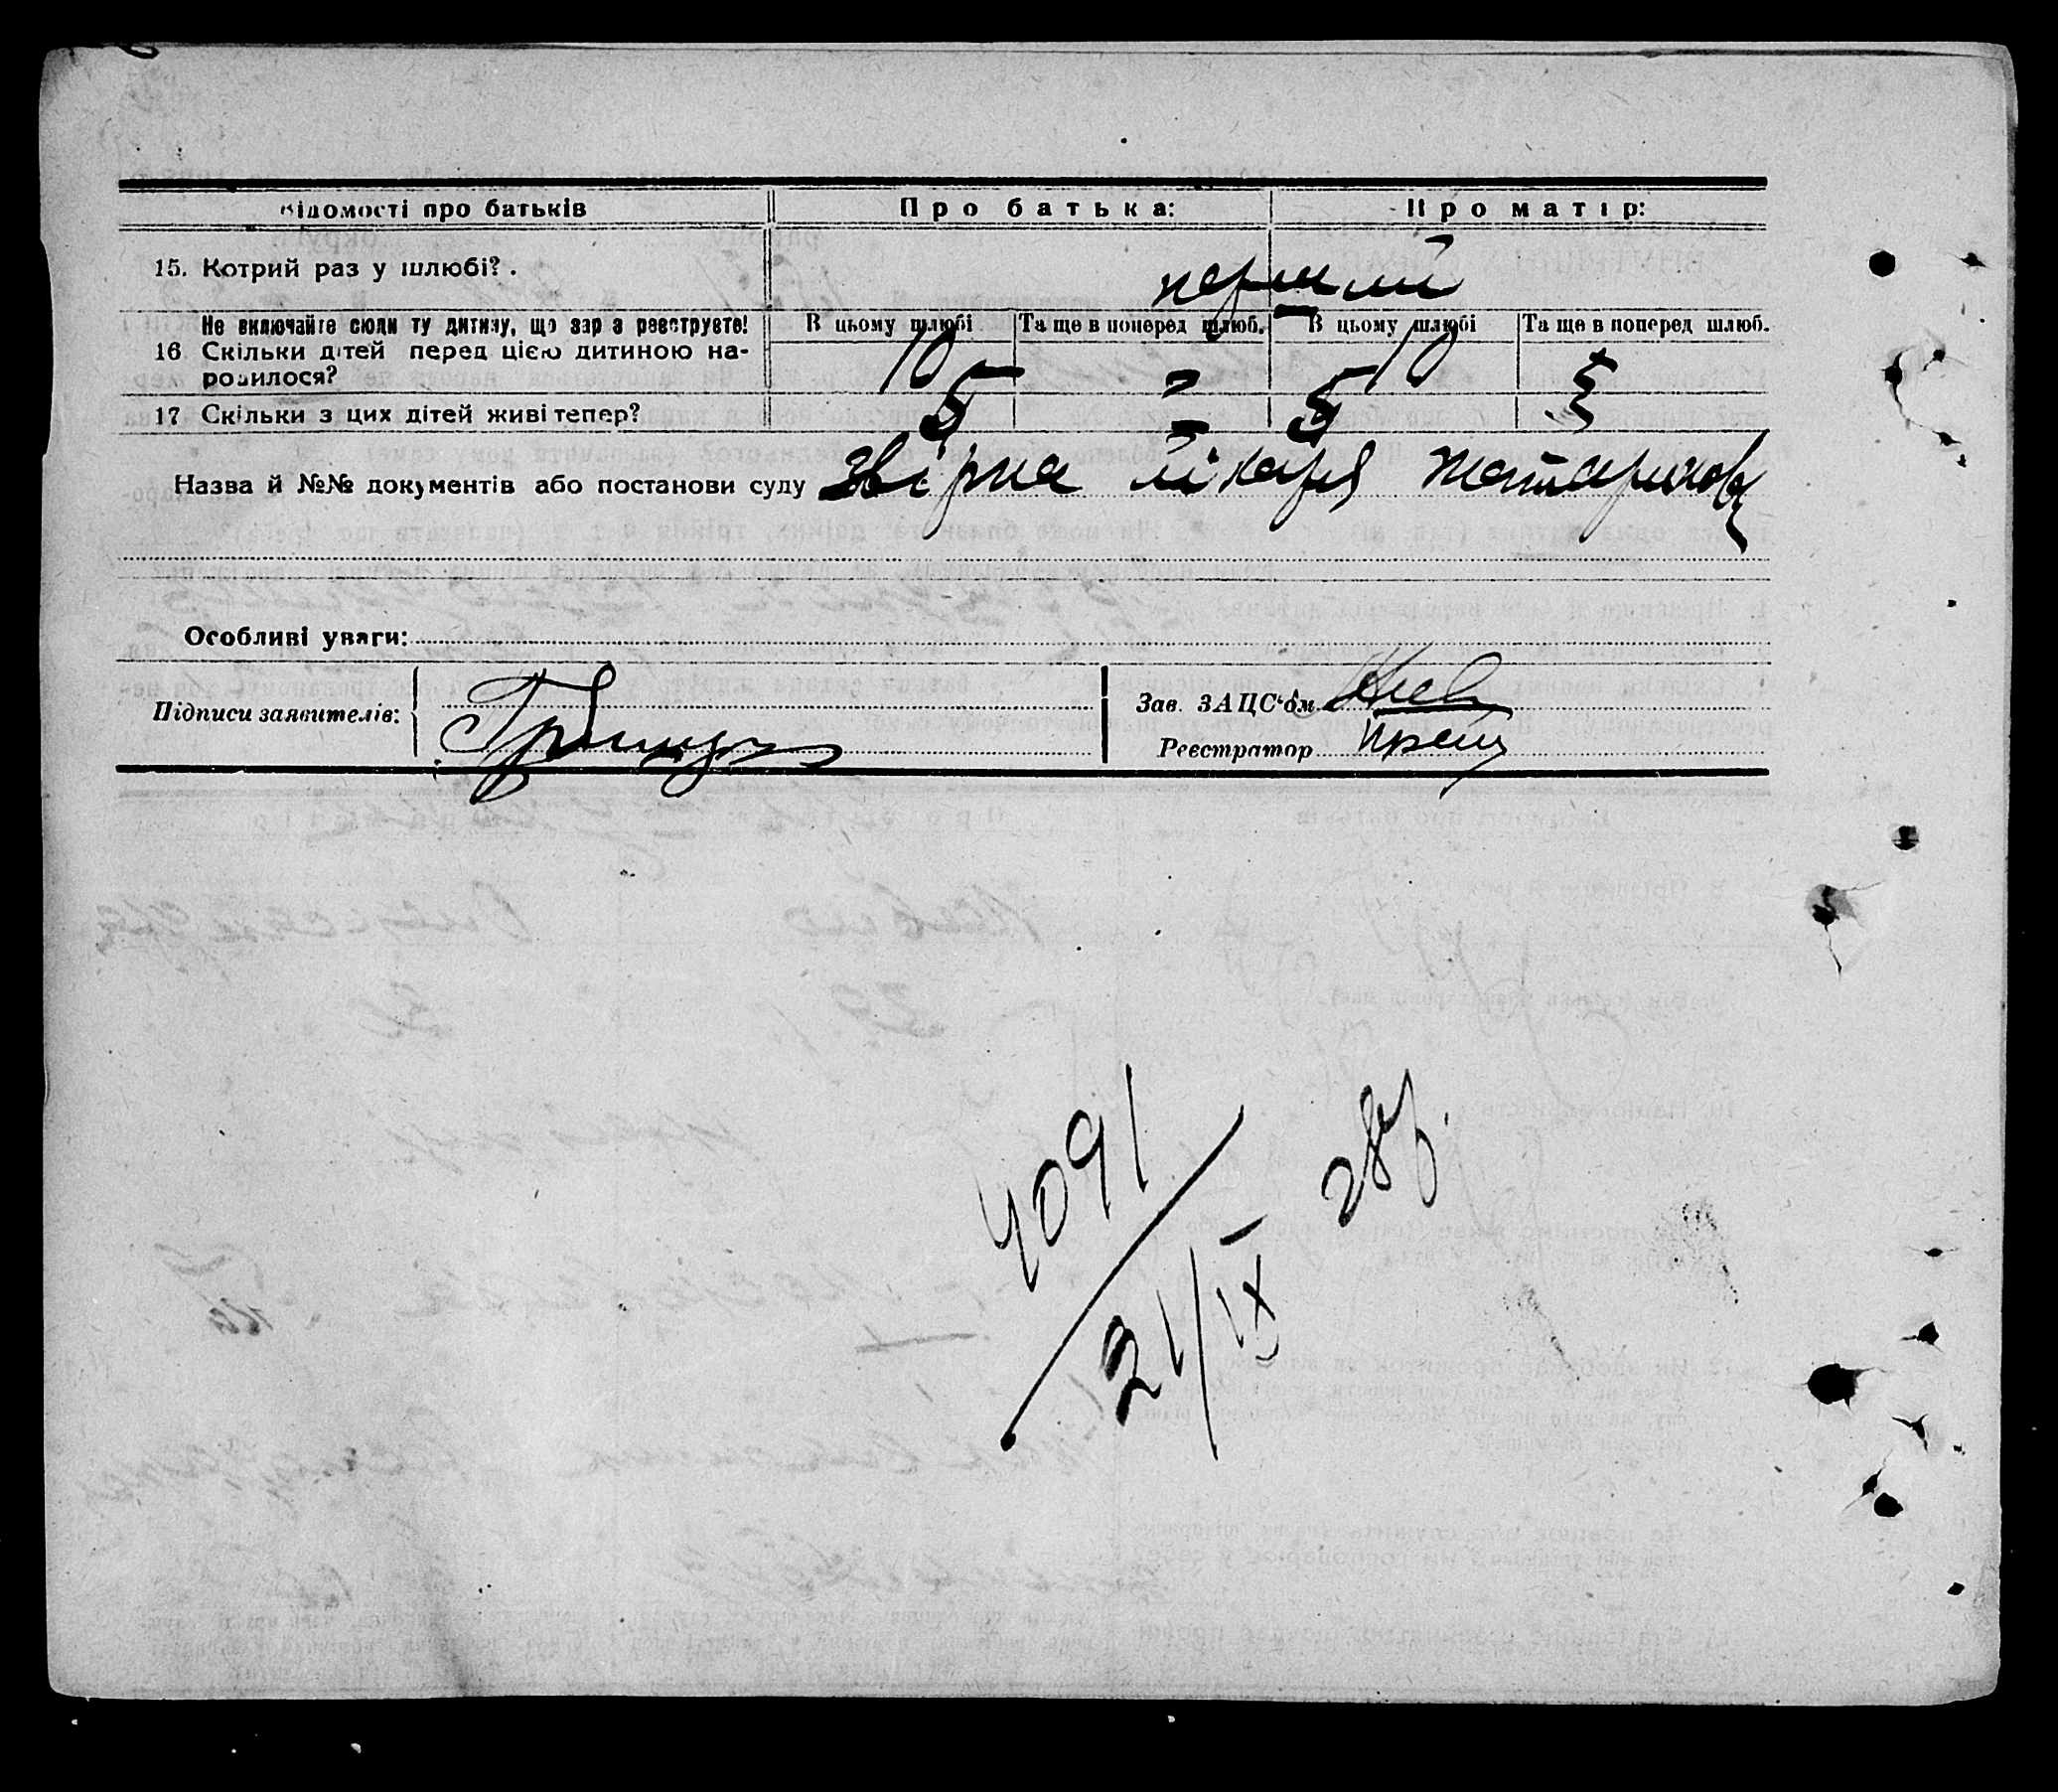 Відомості про батьків Про батька: Про матір:
15. Котрий раз у шлюбі? . перший
Не включайте сюди ту дитину, що зараз реєструєте! В цьому шлюбі Та ще в поперед шлюб. В цьому шлюбі Та ще в поперед шлюб.
16 Скільки дітей перед цією дитиною на- 10 10
родилося?
17 Скільки з цих дітей живі тепер? 5 5
Назва й №№ документів або постанови суду звірка лікаря
Особливі уваги:
Підписи заявителів:
Зав. ЗАЦС'ом
Реєстратор
4091
21/IX 28р.